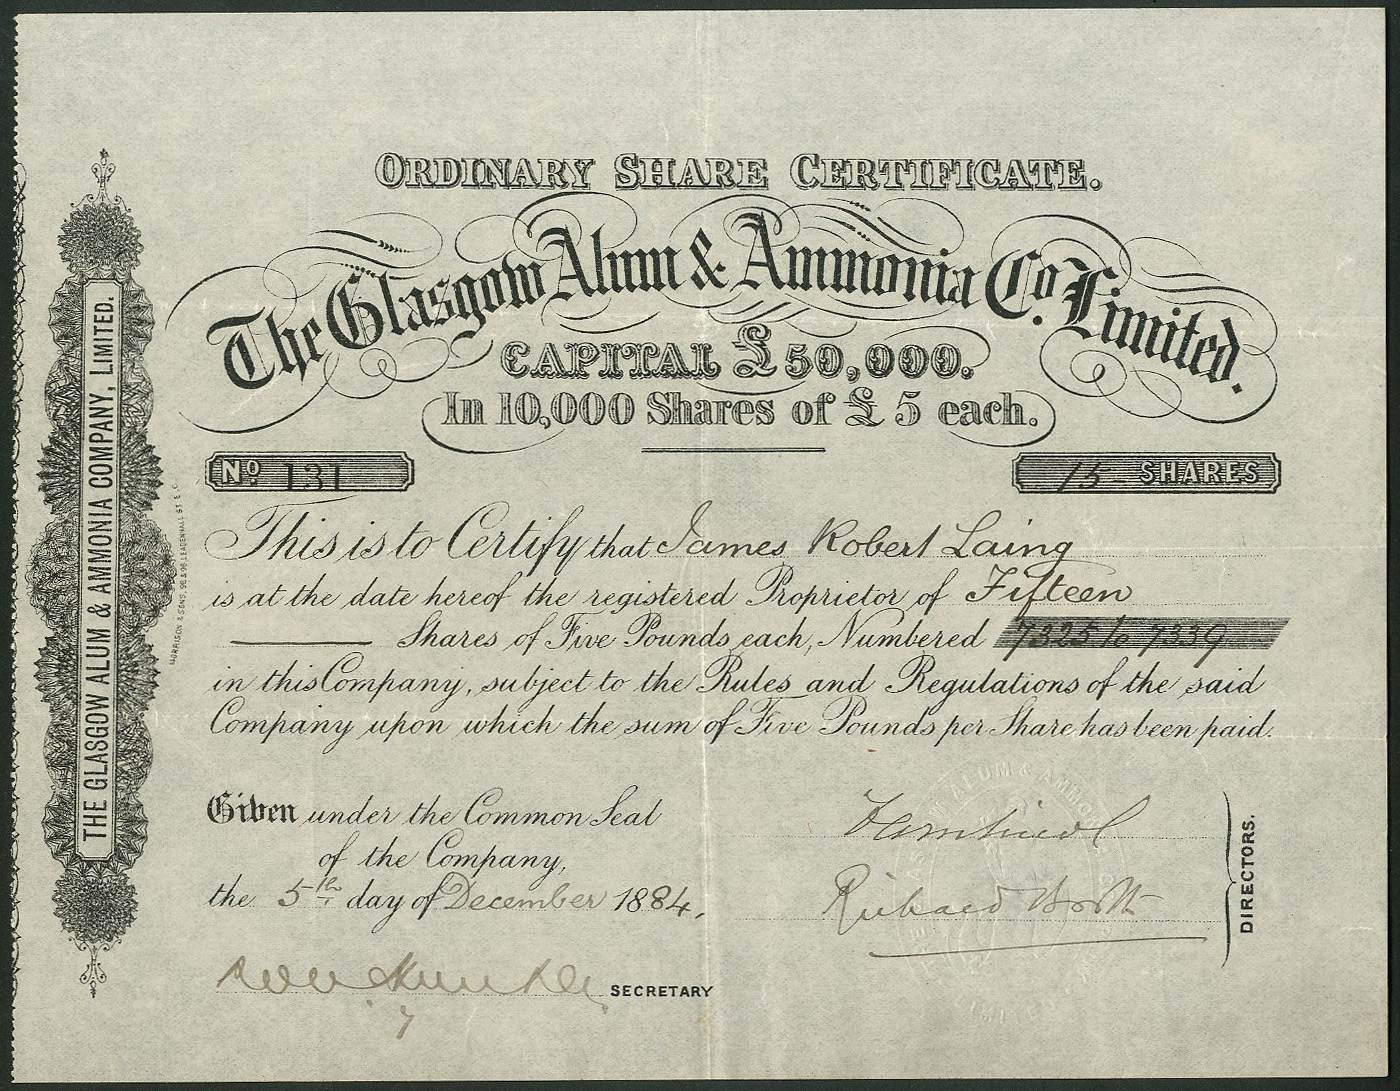 ORDINARY SHARE CERTIFICATE.
The Glasgow Alum & Ammonia Co. Limited.
CAPITAL £50,000.
In 10,000 Shares of £5 each.
No. 131
15 SHARES
This is to Certify that James Robert Laing
is at the date hereof the registered Proprietor of Fifteen
Shares of Five Pounds each, Numbered 7325 to 7339
in this Company, subject to the Rules and Regulations of the said
Company upon which the sum of Five Pounds per Share has been paid.
Given under the Common Seal
of the Company,
the 5th day of December 1884.
Richard
DIRECTORS.
SECRETARY
THE GLASGOW ALUM & AMMONIA COMPANY, LIMITED.
MORRISON & SONS, 95 & 96 LEADENHALL ST. E.C.
ALUM & AMMONIA
LIMITED